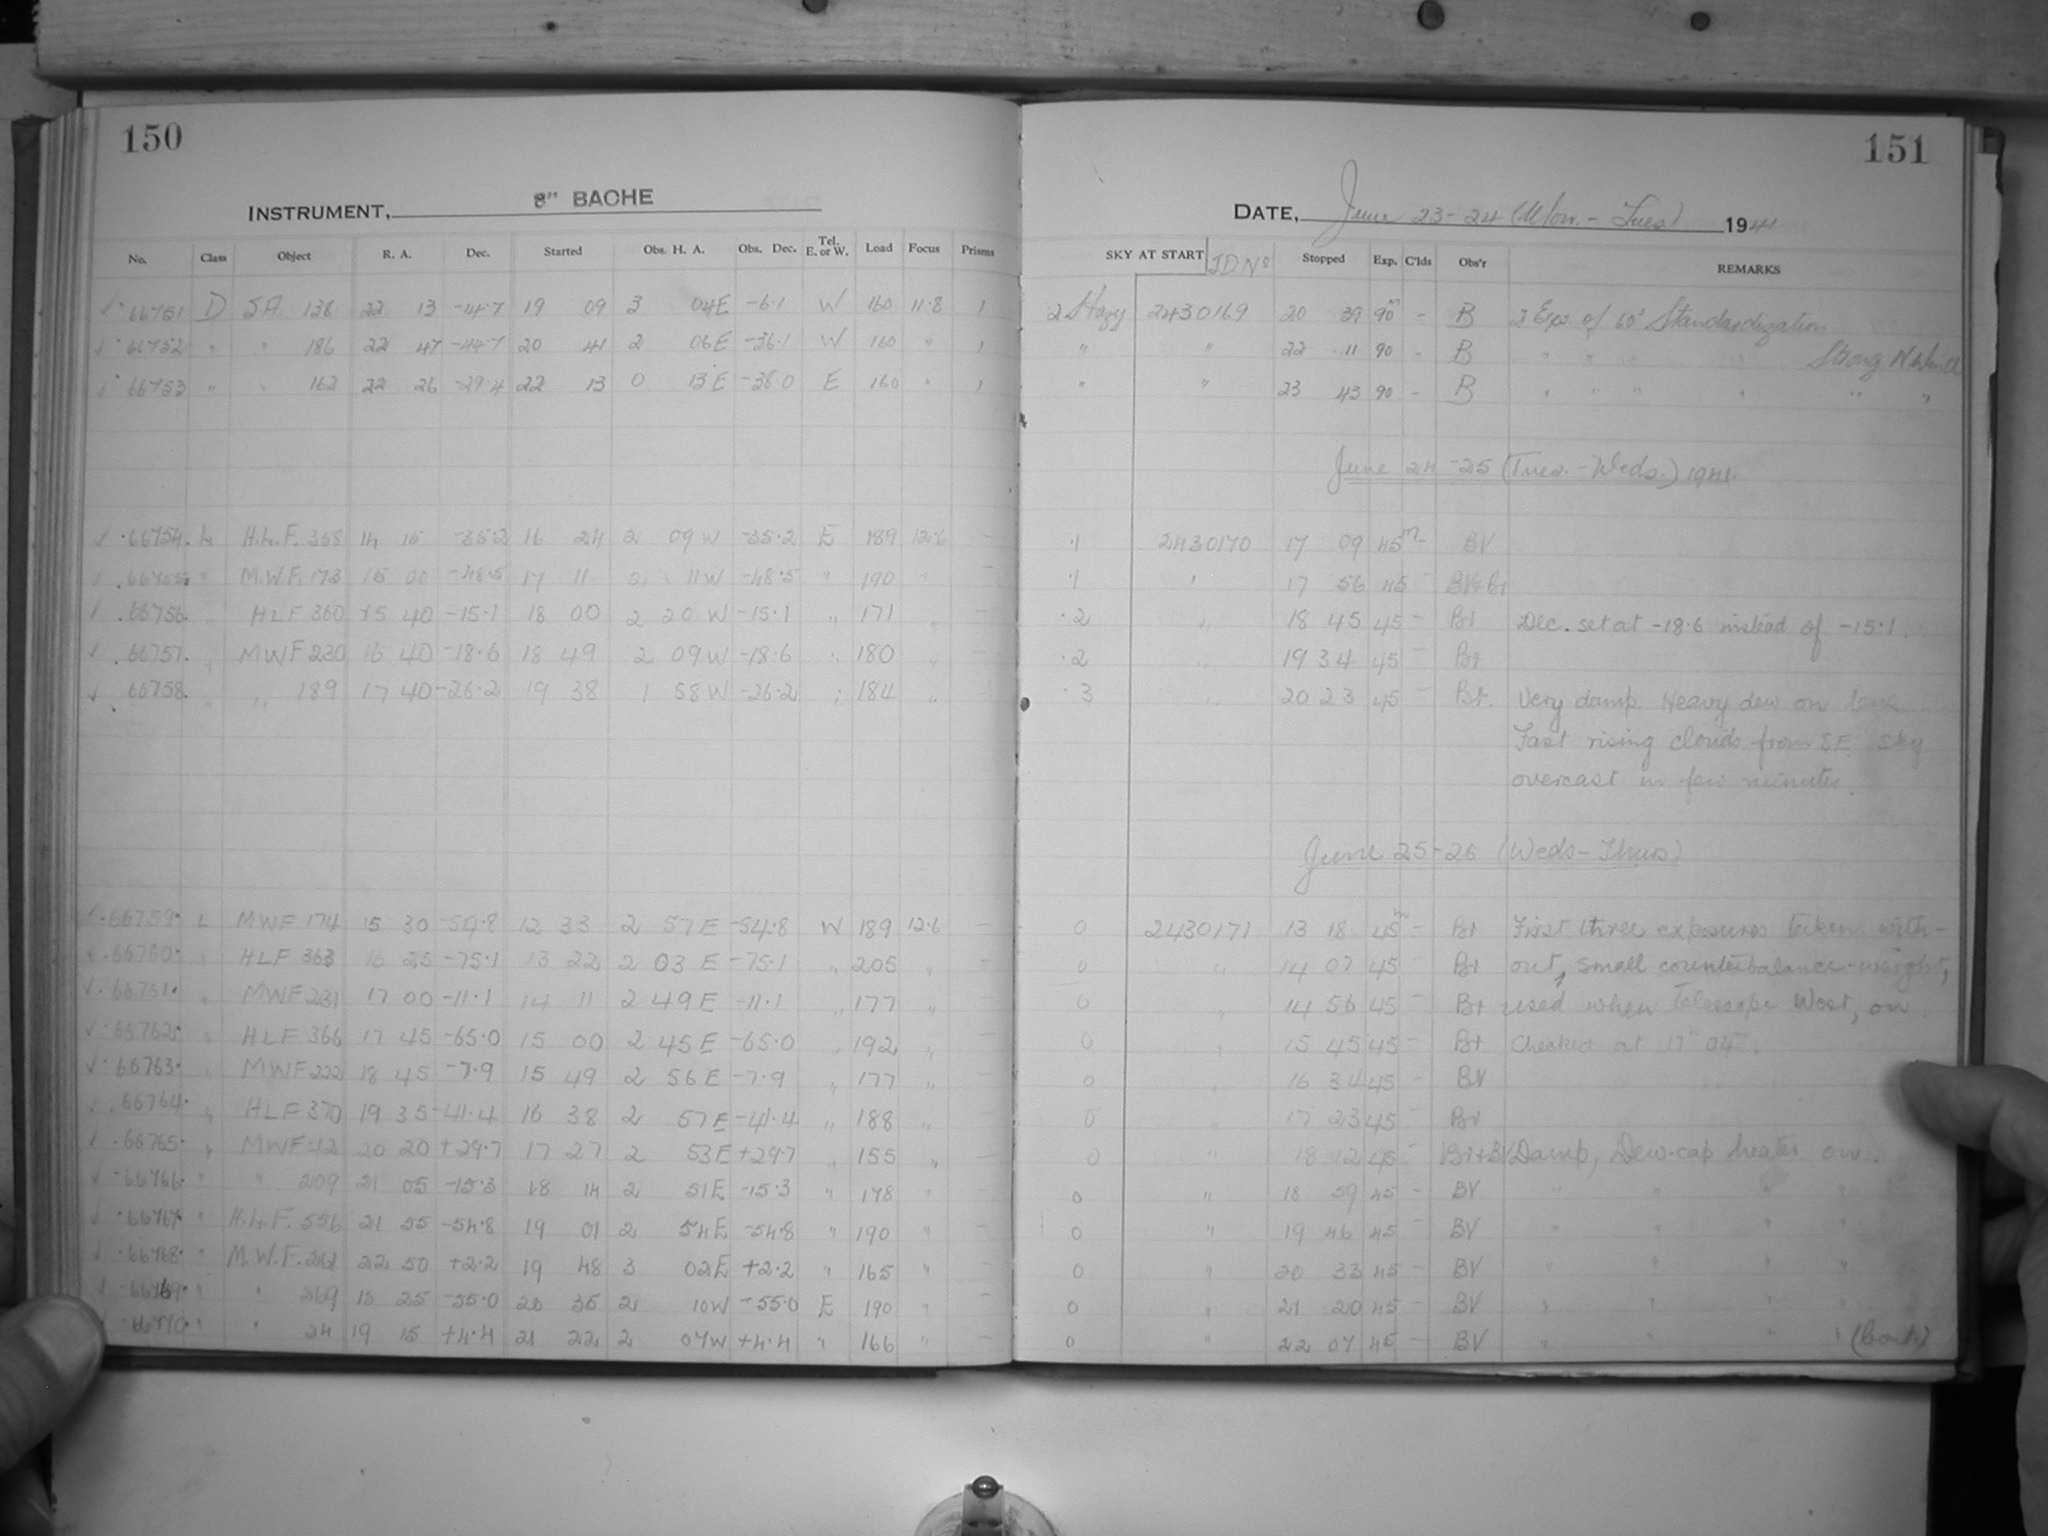 150
INSTRUMENT, 8" BACHE
No. Class Object R. A. Dec. Started Obs. H. A. Obs. Dec. Tel. E. or W. Load Focus Prisms
✓ 66751 D SA 138 22 13 -4.7 19 09 3 04E -6.1 W 160 11.8 1
✓ 66752 " " 186 22 47 -44.7 20 41 2 06E -36.1 W 160 " 1
✓ 66753 " " 162 22 26 -29.4 22 13 0 13E -38.0 E 160 " 1
✓ 66754. L H.L.F. 14 15 -35.2 16 24 2 09W -35.2 E 189 12.6 -
✓ .66755 " M.W.F. 173 15 00 -48.5 17 11 2 11W -48.5 " 190 " -
✓ .66756. " HLF 360 15 40 -15.1 18 00 2 20W -15.1 " 171 " -
✓ .66757. " MWF 230 16 40 -18.6 18 49 2 09W -18.6 " 180 " -
✓ 66758. " " 189 17 40 -26.2 19 38 1 58W -26.2 " 184 " -
66759. L MWF 174 15 30 -54.8 12 33 2 57E -54.8 W 189 12.6 -
66760. " HLF 363 16 25 -75.1 13 22 2 03E -75.1 " 205 " -
✓ 66761. " MWF 231 17 00 -11.1 14 11 2 49E -11.1 " 177 " -
✓ 66762. " HLF 366 17 45 -65.0 15 00 2 45E -65.0 " 192 " -
✓ 66763. " MWF 222 18 45 -7.9 15 49 2 56E -7.9 " 177 " -
✓ .66764. " HLF 370 19 35 -41.4 16 38 2 57E -41.4 " 188 " -
✓ .66765. " MWF 42 20 20 +29.7 17 27 2 53E +29.7 " 155 " -
✓ 66766 " " 209 21 05 -15.3 18 14 2 51E -15.3 " 178 " -
✓ 66767 " H.L.F. 556 21 55 -54.8 19 01 2 54E -54.8 " 190 " -
✓ 66768 " M.W.F. 22 50 +2.2 19 48 3 02E +2.2 " 165 " -
✓ 66769 " " 269 18 25 -55.0 20 35 2 10W -55.0 E 190 " -
66770 " " 24 19 15 +4.4 21 22 2 07W +4.4 " 166 " -
151
DATE, June 23-24 (Mon.-Tues) 1941
SKY AT START JD No Stopped Exp. C'lds Obs'r REMARKS
2 Hazy 2430169 20 39 90m - B Exps. of 60s Standardization
" " 22 11 90 - B " " " " Strong N. Wind
" " 23 43 90 - B " " " " " "
June 24-25 (Tues.-Weds.) 1941.
.1 2430170 17 09 45m - BV
.1 " 17 56 45 - BV&Br
.2 " 18 45 45 - Br Dec. set at -18.6 instead of -15.1.
.2 " 19 34 45 - Br
.3 " 20 23 45 - Br. Very damp. Heavy dew on lens
Fast rising clouds from S.E. Sky
overcast in few minutes.
June 25-26 (Weds-Thurs)
0 2430171 13 18 45m - Br First three exposures taken with-
0 " 14 07 45 - Br out, small counterbalance-weight,
0 " 14 56 45 - Br used when Telescope West, on.
0 " 15 45 45 - Br Checked at 17h 04m.
0 " 16 34 45 - Br
0 " 17 23 45 - Br
0 " 18 12 45 - Br+BV Damp, Dew-cap heater on.
0 " 18 59 45 - BV " " " "
0 " 19 46 45 - BV " " " "
0 " 20 33 45 - BV " " " "
0 " 21 20 45 - BV " " " "
0 " 22 07 45 - BV " " " " (Cont.)